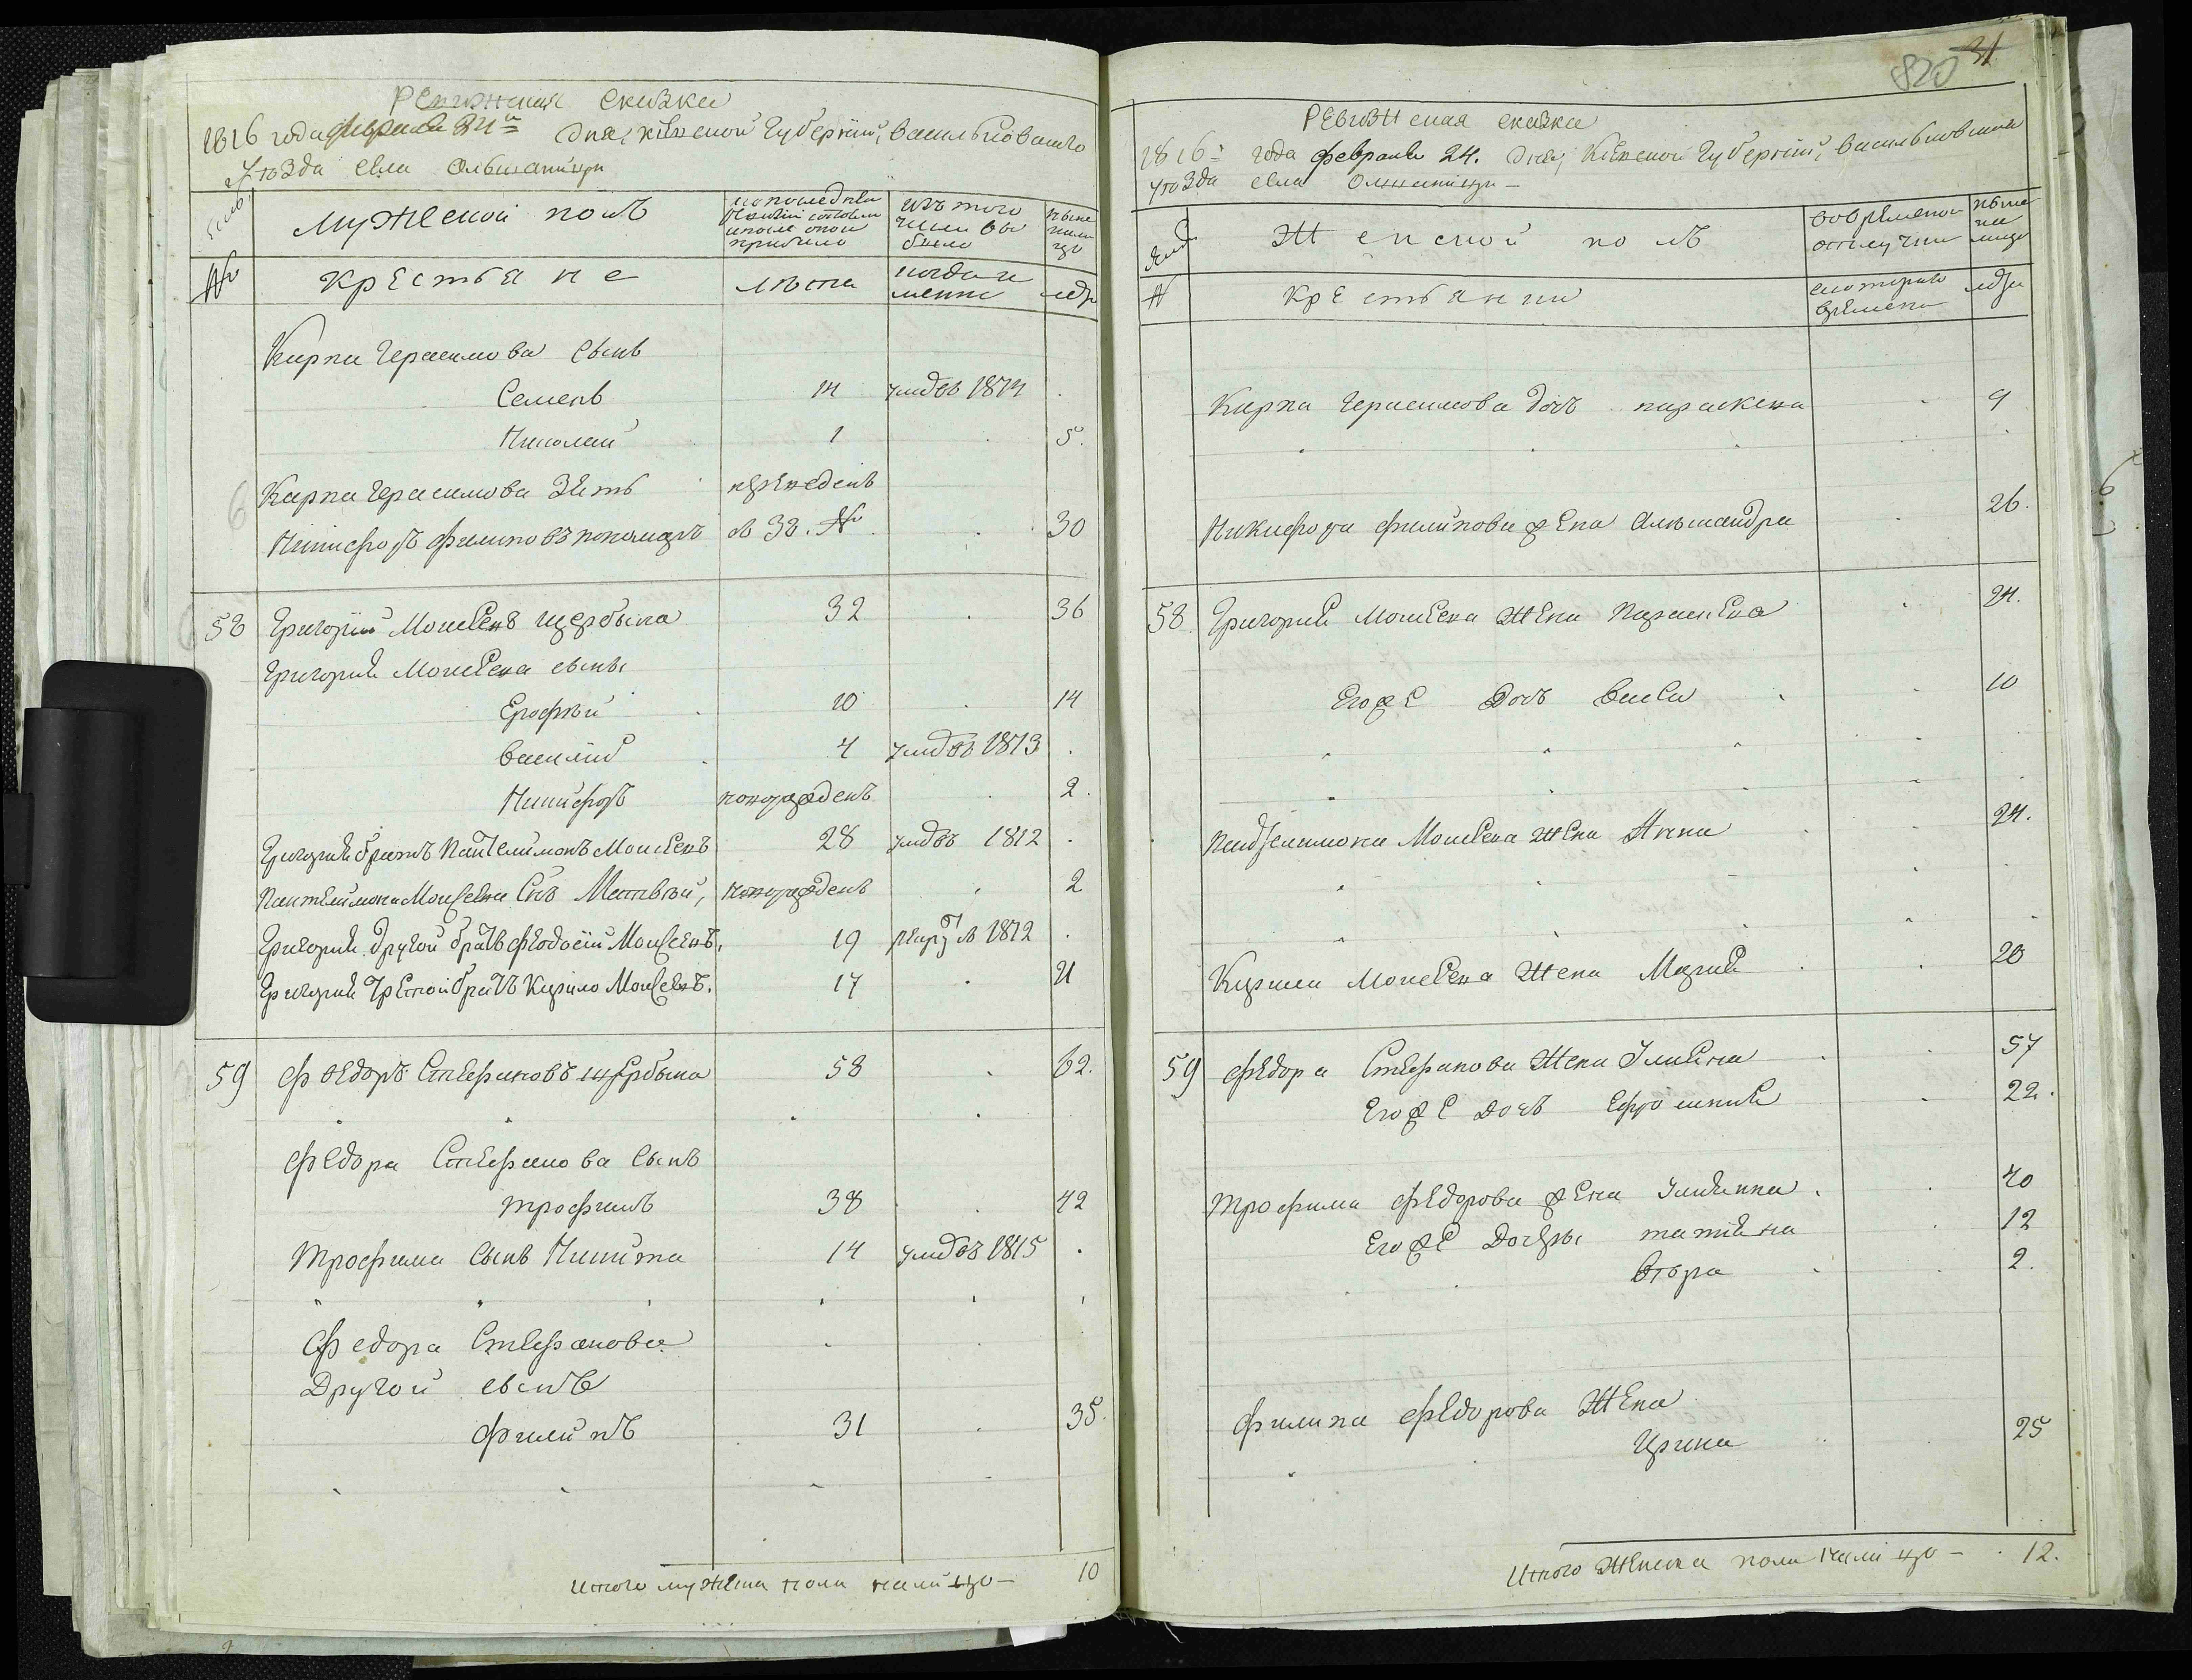 Ревижская сказка
1816 года февраля 24 дня, Кіевской Губерніи, Васильковского
уѣзда села Ольшаницы
Мужеской полъ
по последней
прибыло
изъ того
числа вы
было
ныне
на ли
цо
№
Крестьяне
лѣта
когда и
лѣта
Карпа Герасимова Сынъ
Семенъ 14 умеръ 1814
Николай 1 5.
Карпа Герасимова Зять переведенъ
Никифоръ Филиповъ пономарь 30
58 Григорий Моисеевъ щербына 32 36
Григория Моисеева сыны
Ерофѣй 10 14
Василий 4 умеръ 1813
Никифоръ новорожденъ 2.
Григория братъ Пантелимонъ Моисеевъ 28 умеръ 1812
Пантелимона Моисеева Снъ Матвѣй, новорожденъ 2
Григория другой братъ Феодосій Моисеевъ. 19 рекру в 1812
Григория Третой братъ Курило Моисеевъ. 17 21
59 Федоръ Стефановъ щербына 58 62.
Федора Стефанова Сынъ
Трофимъ 38 42
Трофима Сынъ Никита 14 умеръ 1815
Федора Стефанова
Другой сынъ
Филипъ 31 35.
Итого мужеска пола налицо — 10
820 31
Ревижская сказка
1816 года февраля 24. дня, Кіевской Губерніи, Васильковского
уѣзда села Олшаницы —
Женской полъ
во временной
отлучки
ныне
на
лицо
№
Крестьянки
с котораго
времени
лѣта
Карпа Герасимова дочь параскева 9
Никифора филипова жена Александра 26.
58. Григория Моисеева Жена Параскева 24.
Его же Дочь Васса 10
Пантелимона Моисеева жена Анна 24.
Кирила Моисеева Жена Мария 20
59 Федора Стефанова Жена Улияна 57
Его же дочь Ефросиния 22.
Трофима Федорова жена Улиянна. 40
Его же Дочеры татияна 12
Вѣра 2.
Филипа Федорова Жена
Ирина 25
Итого Женска пола налицо — 12.